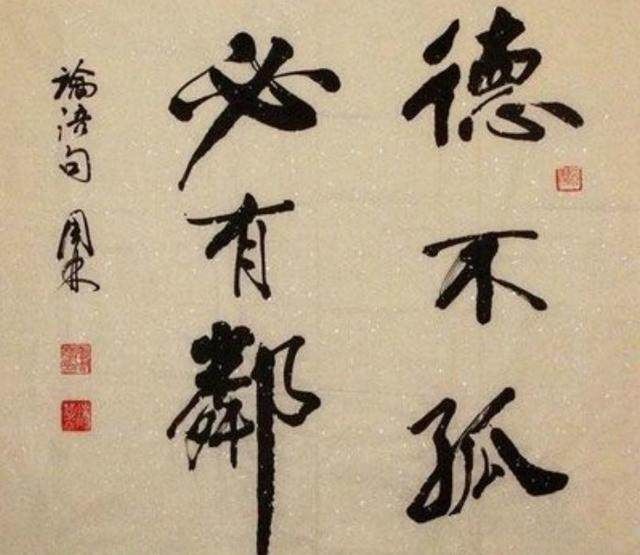 德不孤
必有鄰
論語句 周東